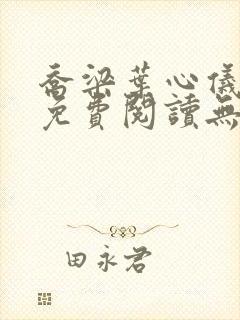 喬梁葉心儀
免費閱讀無
田永君